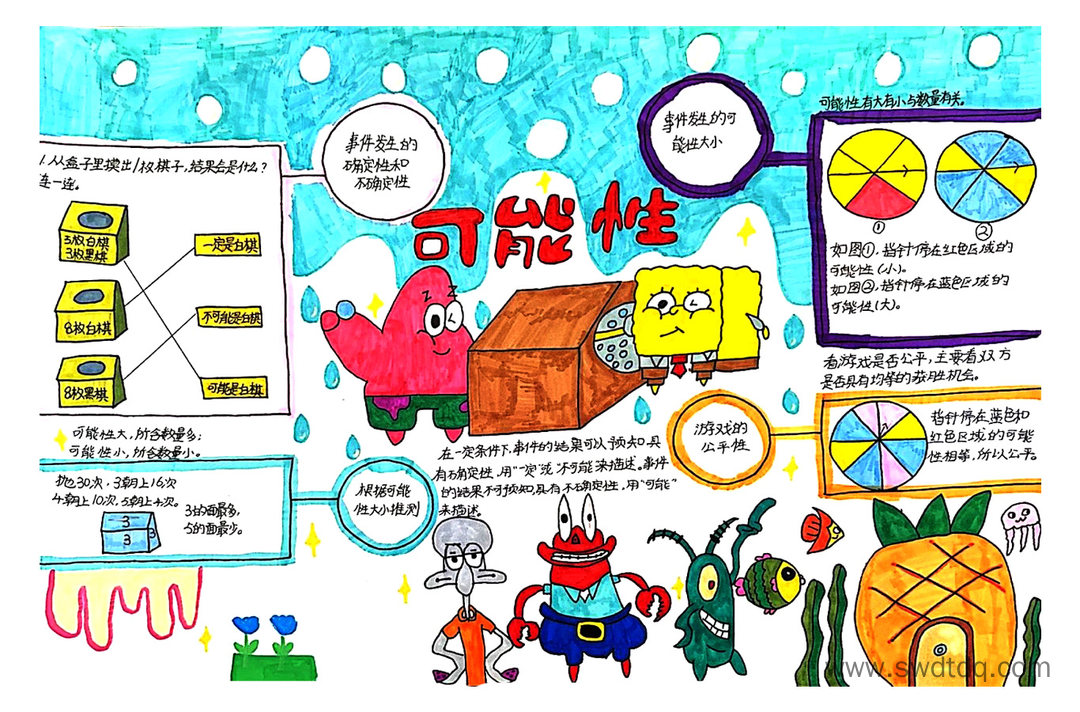 可能性
事件发生的
确定性和
不确定性
1.从盒子里摸出1枚棋子,结果会是什么?
连一连。
3枚白棋
3枚黑棋
8枚白棋
8枚黑棋
一定是白棋
不可能是白棋
可能是白棋
可能性大,所含数量多;
可能性小,所含数量小。
抛30次,3朝上16次
4朝上10次,5朝上4次。
3的面最多,
5的面最少。
3
3
3
根据可能
性大小推测
在一定条件下,事件的结果可以预知,具
有确定性,用"一定"或"不可能"来描述。事件
的结果不可预知具有不确定性,用"可能"
来描述。
事件发生的可
能性大小
可能性有大有小与数量有关。
①
②
如图①,指针停在红色区域的
可能性(小)。
如图②,指针停在蓝色区域的
可能性(大)。
看游戏是否公平,主要看双方
是否具有均等的获胜机会。
游戏的
公平性
指针停在蓝色和
红色区域的可能
性相等,所以公平。
z
z
www.swdtdq.com